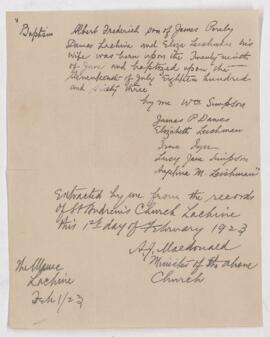 "Baptism Albert Frederick son of James Powley
Dawes Lachine and Eliza Leishman his
wife was born upon the Twenty ninth
of June and baptized upon the
Seventeenth of July Eighteen hundred
and sixty three
by me Wm Simpson
James P Dawes
Elizabeth Leishman
Lucy Jane Simpson
M. Leishman"
Extracted by me from the records
of St Andrew's Church Lachine
this 1st day of February 1923
A.J. Macdonald
Minister of the above
Church
The Manse
Lachine
Feb 1/23